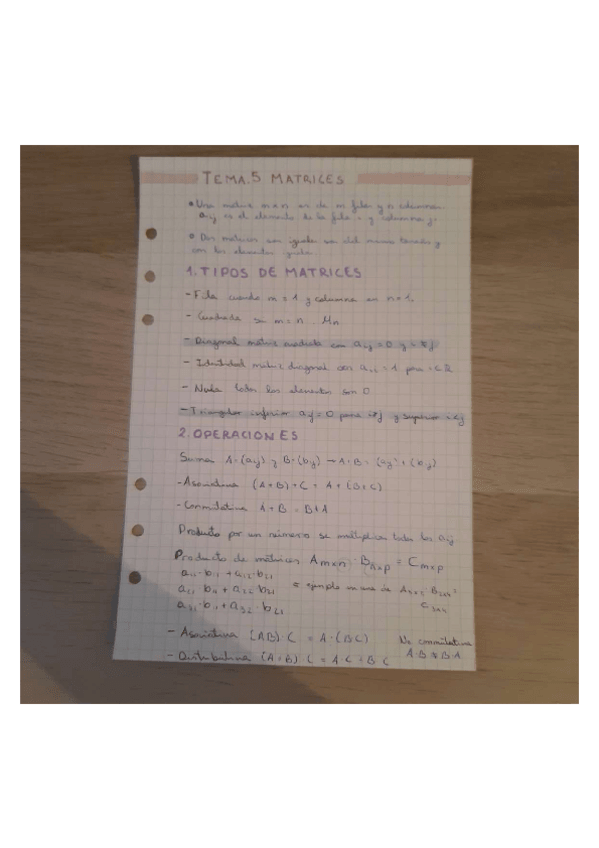 TEMA.5 MATRICES
• Una matriz m×n es de m filas y n columnas
aij es el elemento de la fila i y columna j.
• Dos matrices son iguales son del mismo tamaño y
con los elementos iguales
1. TIPOS DE MATRICES
- Fila cuando m = 1 y columna en n = 1.
- Cuadrada si m = n Mn
- Diagonal matriz cuadrada con aij = 0 i ≠ j
- Identidad matriz diagonal con aii = 1 para
- Nula todos los elementos son 0
- Triangular inferior aij = 0 para i<j y superior i
2. OPERACIONES
Suma A = (aij) y B = (bij) → A + B = (aij) + (bij)
- Asociativa (A + B) + C = A + (B + C)
- Conmutativa A + B = B + A
Producto por un número se multiplica todos los aij
Producto de matrices Amxn · Bnxp = Cmxp
a11 · b11 + a12 · b21
a21 · b11 + a22 · b21 ejemplo
a31 · b11 + a32 · b21
- Asociativa (AB) · C = A · (BC) No conmutativa
- Distributiva (A + B) · C = A · C + B · C A · B ≠ B · A